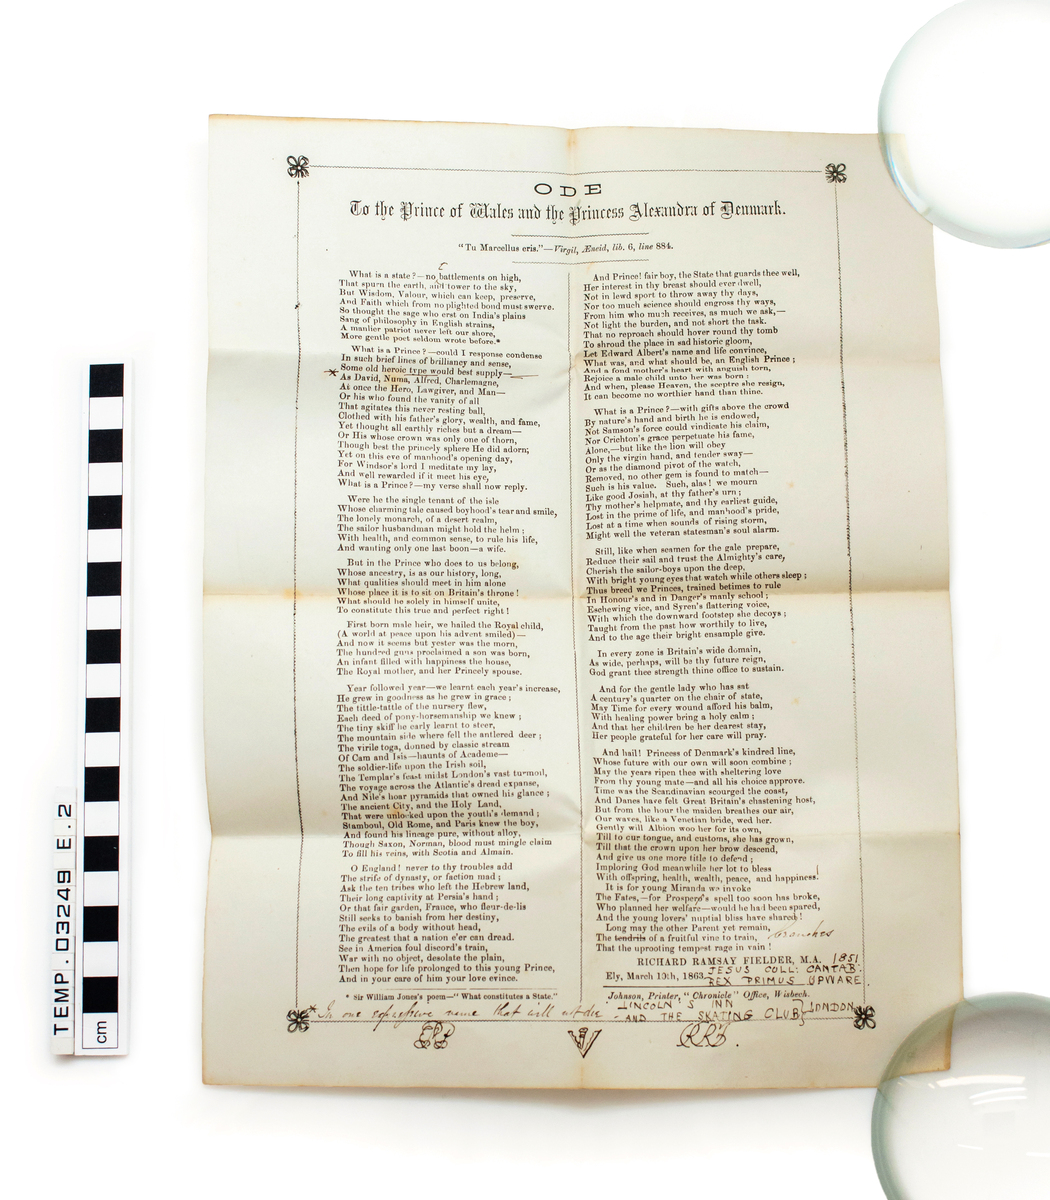 ODE
To the Prince of Wales and the Princess Alexandra of Denmark.
"Tu Marcellus eris."—Virgil, Æneid, lib. 6, line 884.
What is a state?—no battlements on high,
That spurn the earth, and tower to the sky,
But Wisdom, Valour, which can keep, preserve,
And Faith which from no plighted bond must swerve.
So thought the sage who erst on India's plains
Sang of philosophy in English strains,
A manlier patriot never left our shore,
More gentle poet seldom wrote before.*
What is a Prince?—could I response condense
In such brief lines of brilliancy and sense,
Some old heroic type would best supply—
As David, Numa, Alfred, Charlemagne,
At once the Hero, Lawgiver, and Man—
Or his who found the vanity of all
That agitates this never resting ball,
Clothed with his father's glory, wealth, and fame,
Yet thought all earthly riches but a dream—
Or His whose crown was only one of thorn,
Though best the princely sphere He did adorn;
Yet on this eve of manhood's opening day,
For Windsor's lord I meditate my lay,
And well rewarded if it meet his eye,
What is a Prince?—my verse shall now reply.
Were he the single tenant of the isle
Whose charming tale caused boyhood's tear and smile,
The lonely monarch, of a desert realm,
The sailor husbandman might hold the helm;
With health, and common sense, to rule his life,
And wanting only one last boon—a wife.
But in the Prince who does to us belong,
Whose ancestry, is as our history, long,
What qualities should meet in him alone
Whose place it is to sit on Britain's throne!
What should he solely in himself unite,
To constitute this true and perfect right!
First born male heir, we hailed the Royal child,
(A world at peace upon his advent smiled)—
And now it seems but yester was the morn,
The hundred guns proclaimed a son was born,
An infant filled with happiness the house,
The Royal mother, and her Princely spouse.
Year followed year—we learnt each year's increase,
He grew in goodness as he grew in grace;
The tittle-tattle of the nursery flew,
Each deed of pony-horsemanship we knew;
The tiny skiff he early learnt to steer,
The mountain side where fell the antlered deer;
The virile toga, donned by classic stream
Of Cam and Isis—haunts of Academe—
The soldier-life upon the Irish soil,
The Templar's feast midst London's vast turmoil,
The voyage across the Atlantic's dread expanse,
And Nile's hoar pyramids that owned his glance;
The ancient City, and the Holy Land,
That were unlocked upon the youth's demand;
Stamboul, Old Rome, and Paris knew the boy,
And found his lineage pure, without alloy,
Though Saxon, Norman, blood must mingle claim
To fill his veins, with Scotia and Almain.
O England! never to thy troubles add
The strife of dynasty, or faction mad;
Ask the ten tribes who left the Hebrew land,
Their long captivity at Persia's hand;
Or that fair garden, France, who fleur-de-lis
Still seeks to banish from her destiny,
The evils of a body without head,
The greatest that a nation e'er can dread.
See in America foul discord's train,
War with no object, desolate the plain,
Then hope for life prolonged to this young Prince,
And in your care of him your love evince.
* Sir William Jones's poem—"What constitutes a State."
And Prince! fair boy, the State that guards thee well,
Her interest in thy breast should ever dwell,
Not in lewd sport to throw away thy days,
Nor too much science should engross thy ways,
From him who much receives, as much we ask,—
Not light the burden, and not short the task.
That no reproach should hover round thy tomb
To shroud the place in sad historic gloom,
Let Edward Albert's name and life convince,
What was, and what should be, an English Prince;
And a fond mother's heart with anguish torn,
Rejoice a male child unto her was born:
And when, please Heaven, the sceptre she resign,
It can become no worthier hand than thine.
What is a Prince?—with gifts above the crowd
By nature's hand and birth he is endowed,
Not Samson's force could vindicate his claim,
Nor Crichton's grace perpetuate his fame,
Alone,—but like the lion will obey
Only the virgin hand, and tender sway—
Or as the diamond pivot of the watch,
Removed, no other gem is found to match—
Such is his value. Such, alas! we mourn
Like good Josiah, at thy father's urn;
Thy mother's helpmate, and thy earliest guide,
Lost in the prime of life, and manhood's pride,
Lost at a time when sounds of rising storm,
Might well the veteran statesman's soul alarm.
Still, like when seamen for the gale prepare,
Reduce their sail and trust the Almighty's care,
Cherish the sailor-boys upon the deep,
With bright young eyes that watch while others sleep;
Thus breed we Princes, trained betimes to rule
In Honour's and in Danger's manly school;
Eschewing vice, and Syren's flattering voice,
With which the downward footstep she decoys;
Taught from the past how worthily to live,
And to the age their bright ensample give.
In every zone is Britain's wide domain,
As wide, perhaps, will be thy future reign,
God grant thee strength thine office to sustain.
And for the gentle lady who has sat
A century's quarter on the chair of state,
May Time for every wound afford his balm,
With healing power bring a holy calm;
And that her children be her dearest stay,
Her people grateful for her care will pray.
And hail! Princess of Denmark's kindred line,
Whose future with our own will soon combine;
May the years ripen thee with sheltering love
From thy young mate—and all his choice approve.
Time was the Scandinavian scourged the coast,
And Danes have felt Great Britain's chastening host,
But from the hour the maiden breathes our air,
Our waves, like a Venetian bride, wed her.
Gently will Albion woo her for its own,
Till to our tongue, and customs, she has grown,
Till that the crown upon her brow descend,
And give us one more title to defend;
Imploring God meanwhile her lot to bless
With offspring, health, wealth, peace, and happiness!
It is for young Miranda we invoke
The Fates,—for Prospero's spell too soon has broke,
Who planned her welfare—would he had been spared,
And the young lovers' nuptial bliss have shared!
Long may the other Parent yet remain,
The tendrils of a fruitful vine to train, branches
That the uprooting tempest rage in vain!
RICHARD RAMSAY FIELDER, M.A. 1851
Ely, March 10th, 1863. JESUS COLL: CANTAB:
REX PRIMUS UPWARE.
Johnson, Printer, "Chronicle" Office, Wisbech.
LINCOLN'S INN
AND THE SKATING CLUB} LONDON
* In one expressive name that will not die
RRF.
TEMP.03249 E.2
cm